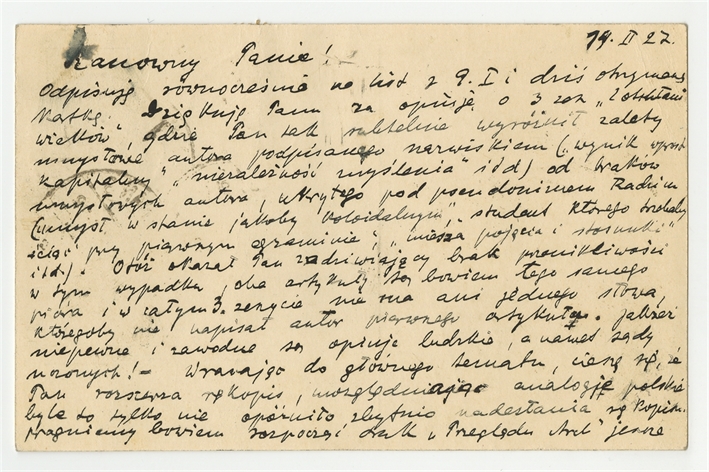 19. II 27.
Szanowny Panie!
Odpisuję równocześnie na list z 9. I i dziś otrzymaną
kartkę. Dziękuję Panu za opinję o 3 zesz. „Z otchłani
wieków", gdzie Pan tak subtelnie wyróżnił zalety
umysłowe autora podpisanego nazwiskiem („wynik wprost
kapitalny" „niezależność myślenia" itd) od braków
umysłowych autora, ukrytego pod pseudonimem
(umysł w stanie jakoby koloidalnym", „student którego trzebaby
ściąć przy pierwszym egzaminie", „miesza pojęcia i stosunki"
itd.) Otóż okazał Pan zadziwiający brak przenikliwości
w tym wypadku, oba artykuły są bowiem tego samego
pióra i w całym 3. zeszycie nie ma ani jednego słowa,
któregoby nie napisał autor pierwszego artykułu. Jakżeż
niepewne i zawodne są opinje ludzkie, a nawet sądy
uczonych! — Wracając do głównego tematu, cieszę się, że
Pan rozszerza rękopis, uwzględniając analogje polskie
byle to tylko nie opóźniło zbytnio nadesłania rękopisu.
pragniemy bowiem rozpocząć druk „Przeglądu Arch" jeszcze